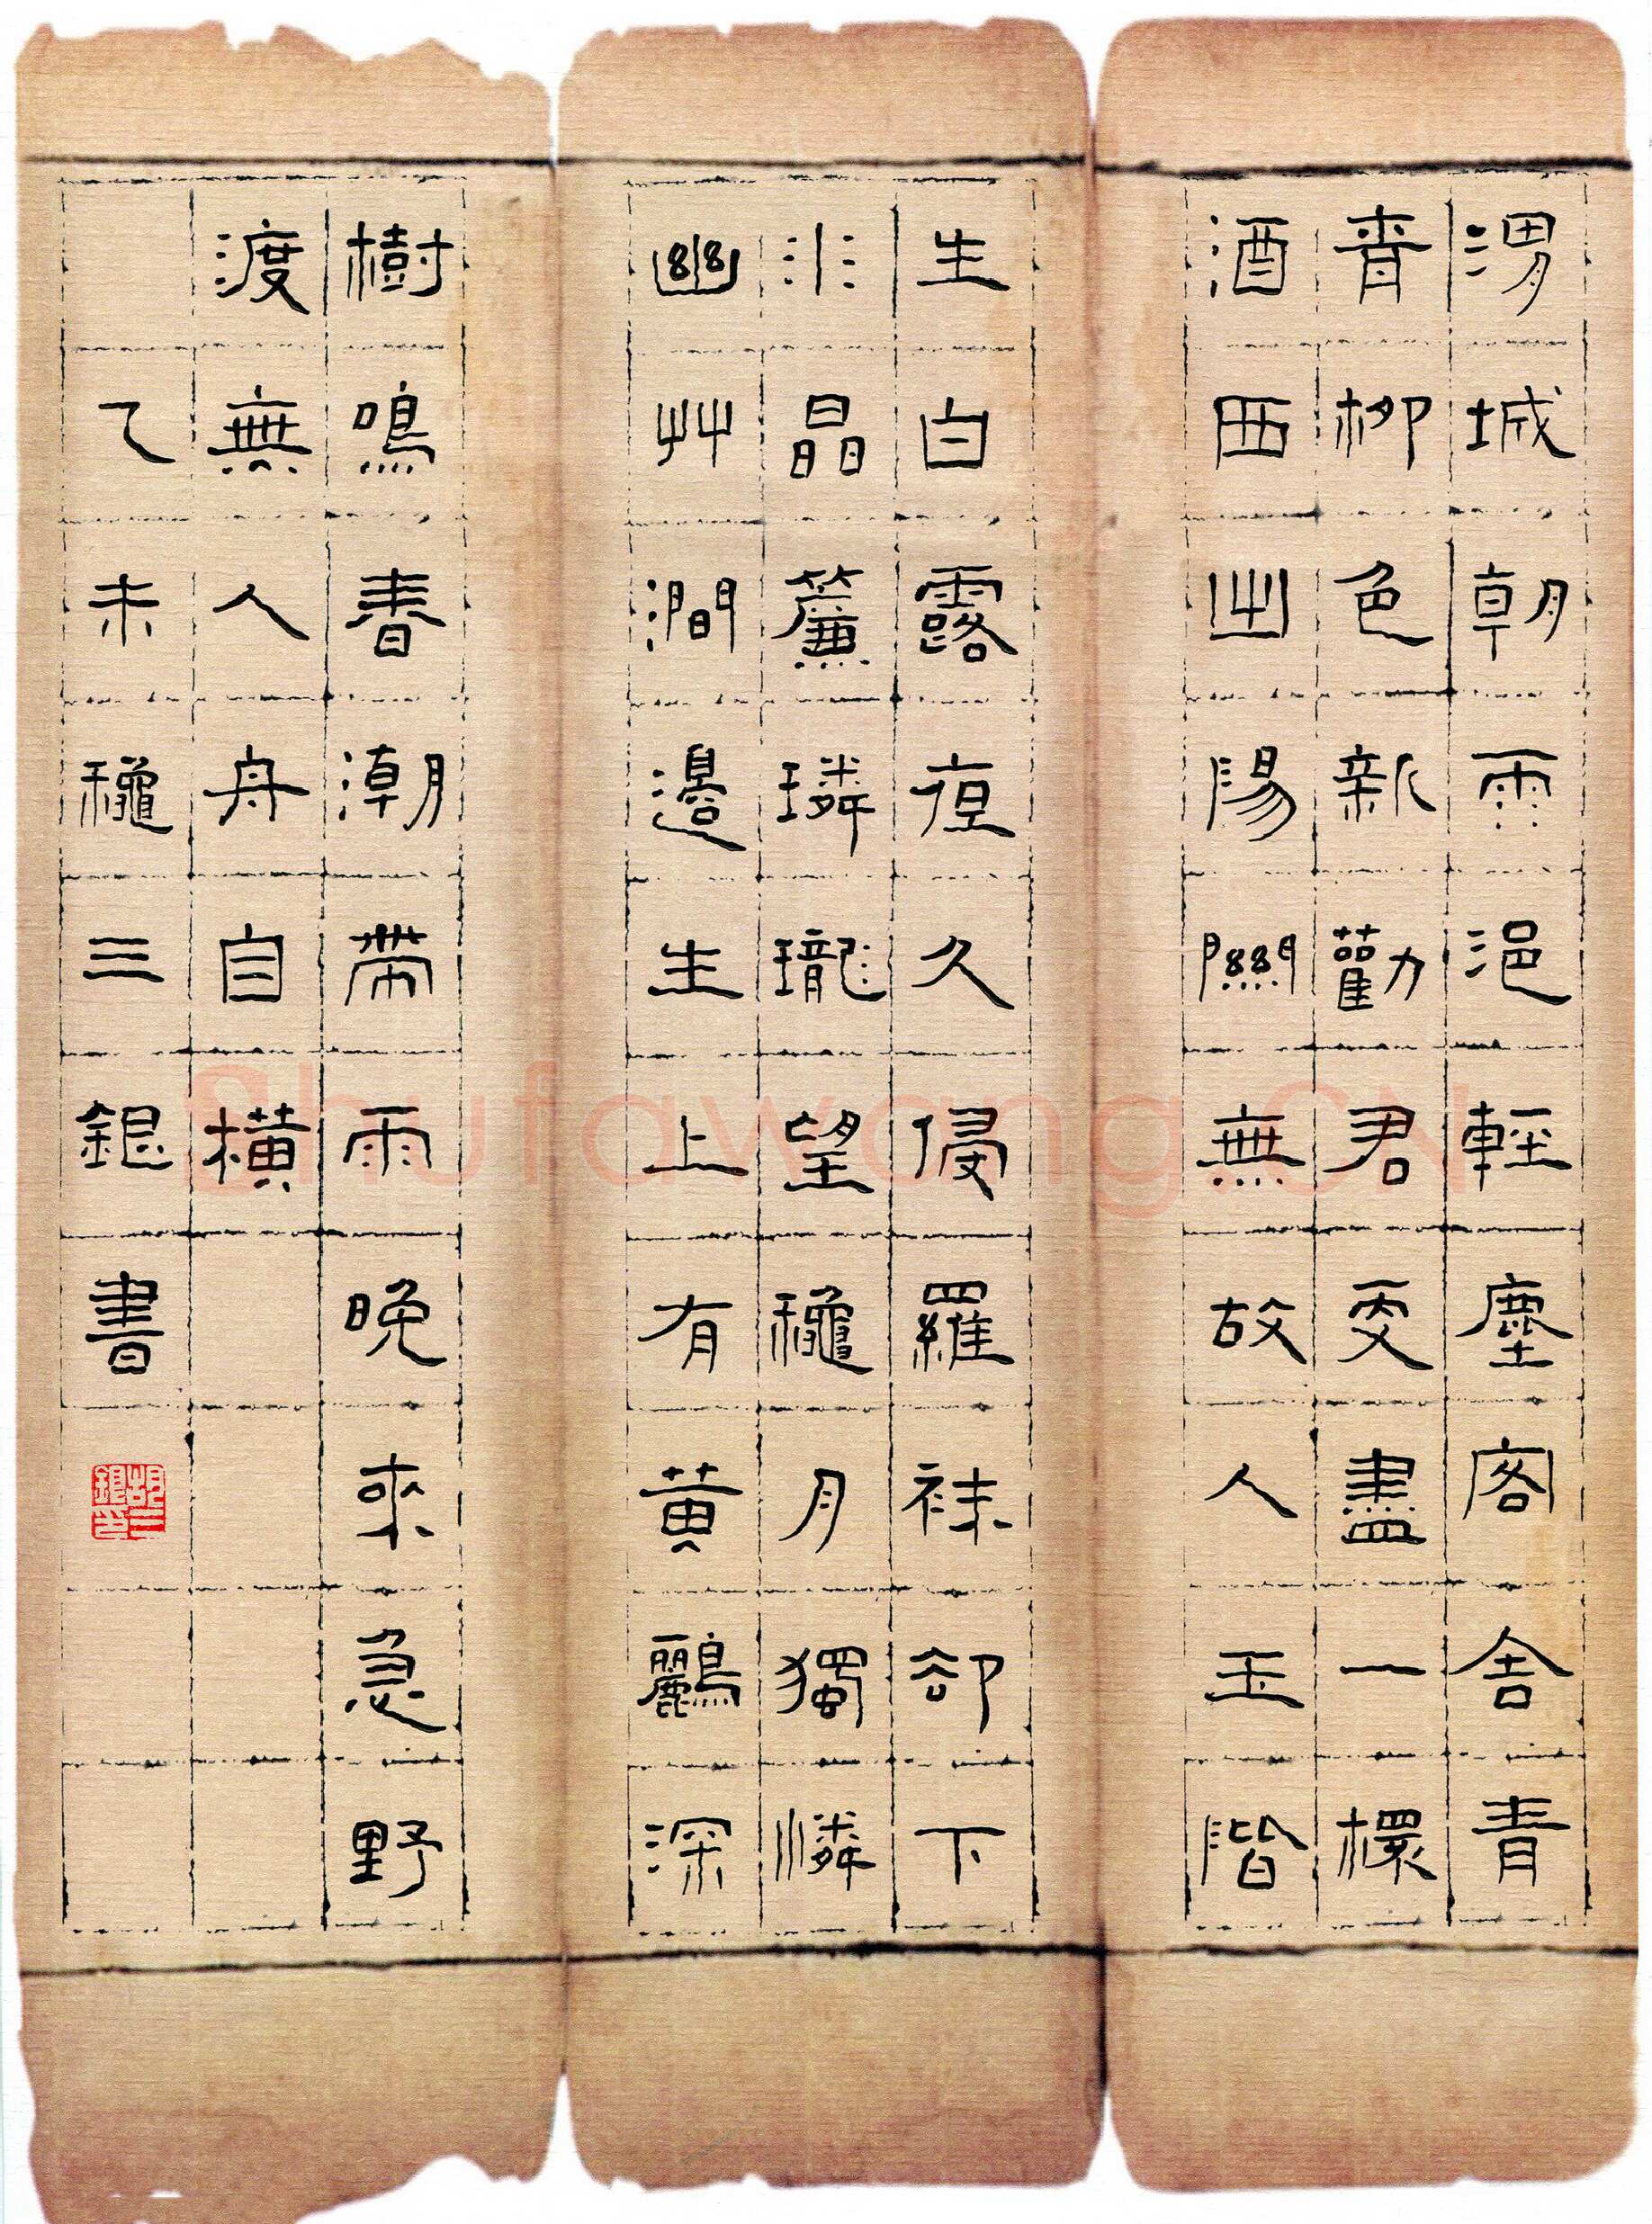 渭城朝雨浥輕塵客舍青
青柳色新勸君更盡一杯
酒西出陽關無故人玉階
生白露夜久侵羅袜却下
水晶簾璘瓏望龝月獨憐
幽艸澗邊生上有黄鸝深
樹鳴春潮帶雨晚來急野
渡無人舟自橫
乙未龝三銀書
胡三銀印
Shufawang.CN